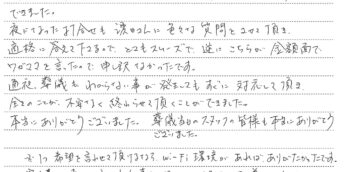 できました。
夜になった打合せも 渡辺さんに色々な質問をさせて頂き
適格に答えて下さるので、とてもスムーズで、逆にこちらが金額面で
ワガママを言ったので申し訳なかったです。
通夜、葬儀も わからない事が発生してもすぐに対応して頂き
全てのことが不安なく終わらせて頂くことができました。
本当にありがとうございました。葬儀当日のスタッフの皆様も本当にありがとう
ございました。
1つ希望を言わせて頂けるなら、Wi-Fi環境があればありがたかったです。